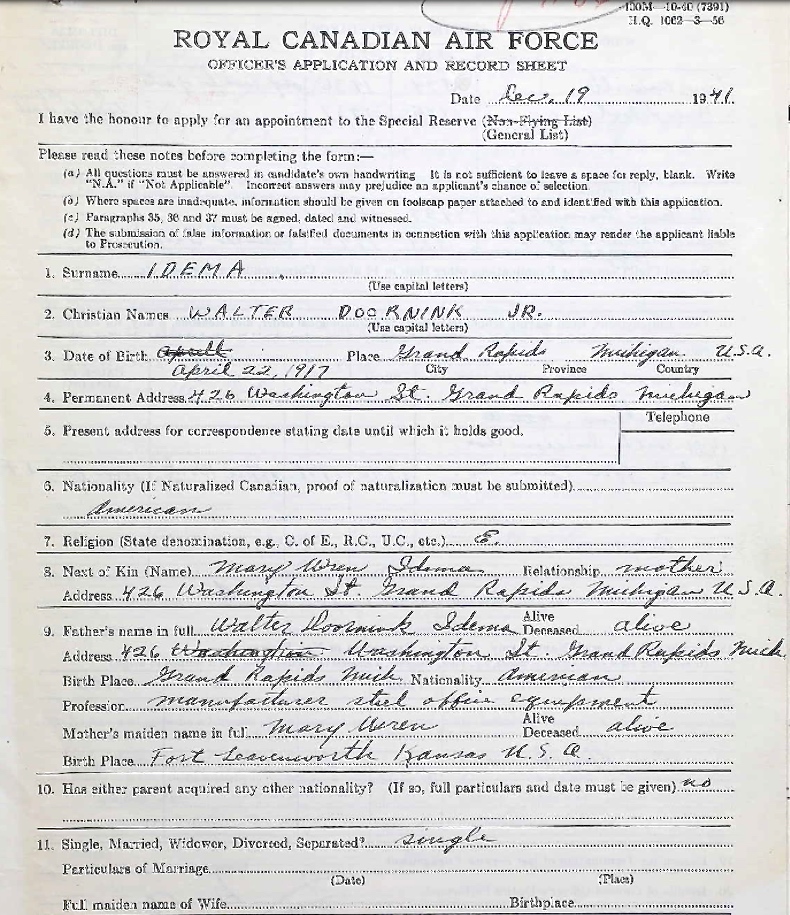 100M—10-40 (7391)
H.Q. 1062—3—56
ROYAL CANADIAN AIR FORCE
OFFICER'S APPLICATION AND RECORD SHEET
Date Dec. 19 1941.
I have the honour to apply for an appointment to the Special Reserve (Non-Flying List)
(General List)
Please read these notes before completing the form:—
(a) All questions must be answered in candidate's own handwriting It is not sufficient to leave a space for reply, blank. Write
"N.A." if "Not Applicable". Incorrect answers may prejudice an applicant's chance of selection.
(b) Where spaces are inadequate, information should be given on foolscap paper attached to and identified with this application.
(c) Paragraphs 35, 36 and 37 must be signed, dated and witnessed.
(d) The submission of false information or falsified documents in connection with this application may render the applicant liable
to Prosecution.
1. Surname IDEMA
(Use capital letters)
2. Christian Names WALTER DOORNINK JR.
(Use capital letters)
3. Date of Birth Aprill Place Grand Rapids Michigan U.S.A.
April 22, 1917 City Province Country
4. Permanent Address 426 Washington St. Grand Rapids Michigan
Telephone
5. Present address for correspondence stating date until which it holds good.
6. Nationality (If Naturalized Canadian, proof of naturalization must be submitted)
American
7. Religion (State denomination, e.g., C. of E., R.C., U.C., etc.) E.
8. Next of Kin (Name) Mary Wren Idema Relationship mother
Address 426 Washington St. Grand Rapids Michigan U.S.A.
9. Father's name in full Walter Doornink Idema Alive Deceased alive
Address 426 Washington Washington St. Grand Rapids Mich.
Birth Place Grand Rapids Mich. Nationality American
Profession manufacturer steel office equipment
Mother's maiden name in full Mary Wren Alive Deceased alive
Birth Place Fort Leavenworth Kansas U.S.A.
10. Has either parent acquired any other nationality? (If so, full particulars and date must be given) no
11. Single, Married, Widower, Divorced, Separated? single
Particulars of Marriage
(Date) (Place)
Full maiden name of Wife Birthplace